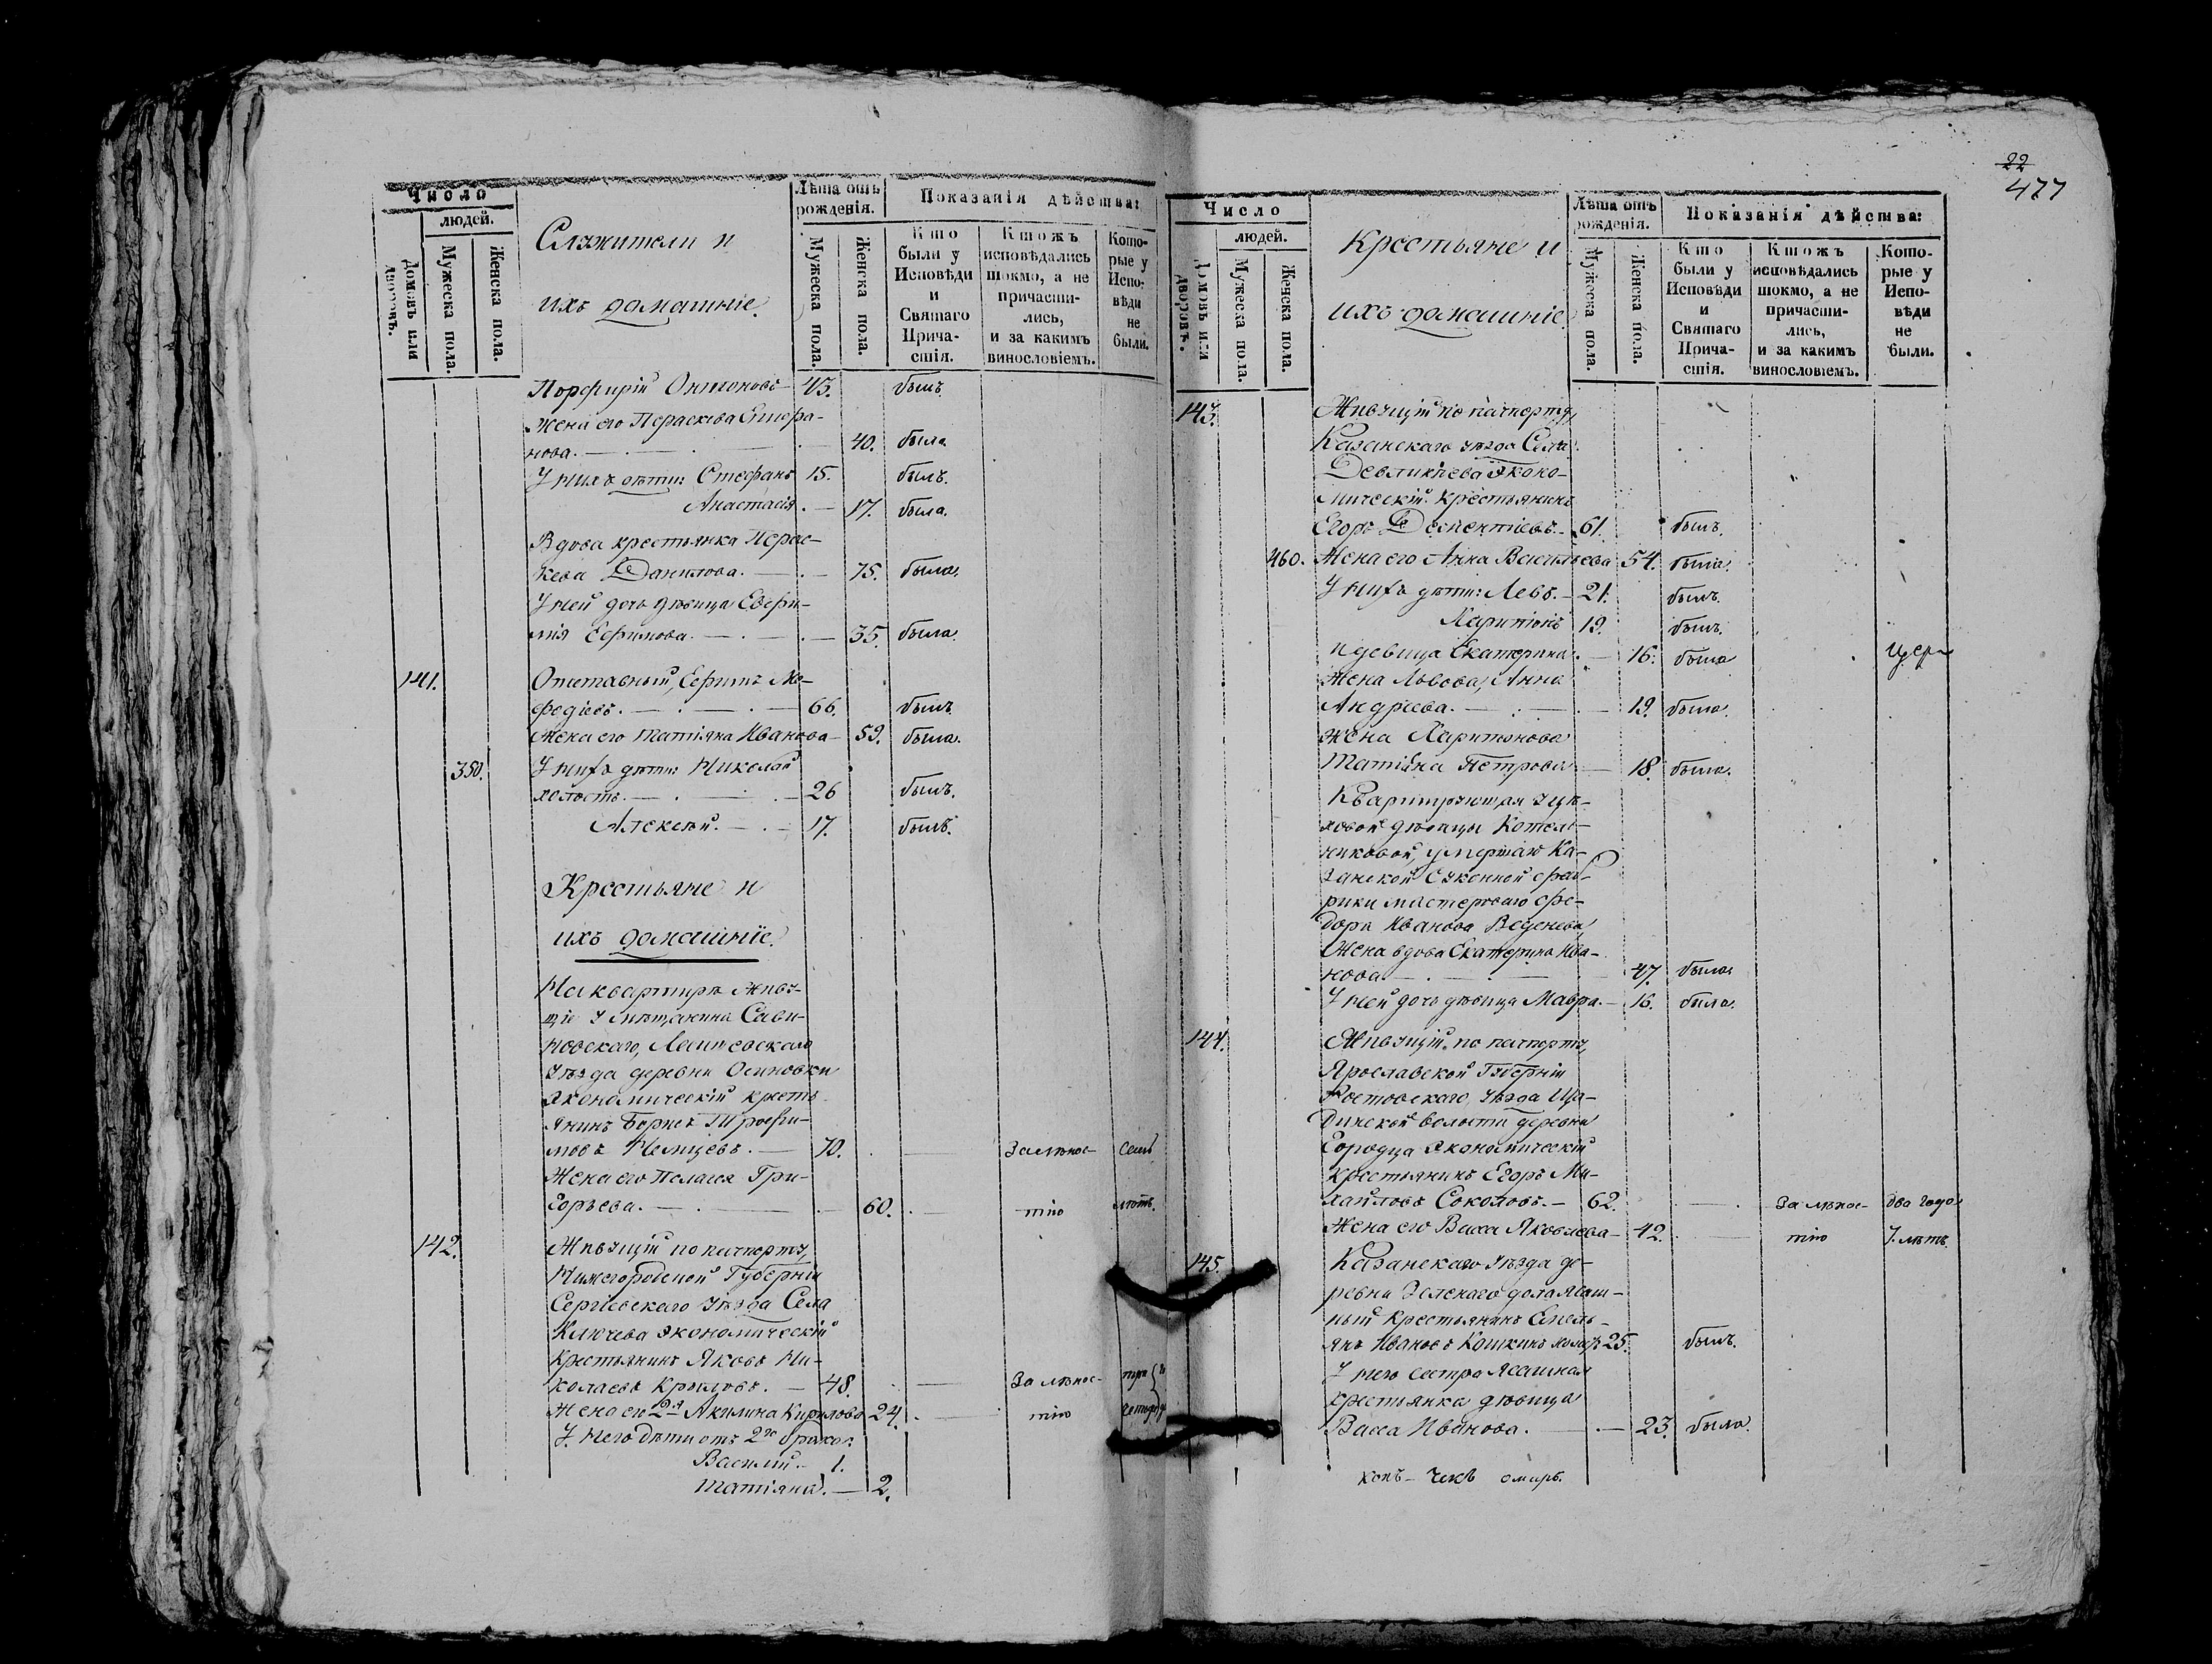 Число
людей.
Домовъ или дворовъ.
Мужеска пола.
Женска пола.
Служители и
ихъ домашніе.
Лѣта отъ рожденія.
Мужеска пола.
Женска пола.
Показанія дѣйства:
Кто были у Исповѣди и Святаго Причастія.
Ктожъ исповѣдались токмо, а не причастились, и за какимъ винословіемъ.
Которые у Исповѣди не были.
Порфирій 43. былъ
Жена его Параскева Стефа-
нова. 40. была
У нихъ дѣти: Стефанъ 15. былъ.
Анастасія. 17. была.
Вдова крестьянка Парас-
кева Данилова. 75. была.
У ней дочь дѣвица Евфи-
мія Ефимова. 35. была.
141. Отставный, Ефимъ Ме-
фодіевъ. 66. былъ
Жена его Татіяна Иванова 59. была.
350. У нихъ дѣти: Николай
холостъ. 26 былъ.
Алексѣй. 17. былъ.
Крестьяне и
ихъ домашніе.
На квартирѣ живу-
щіе у мѣщанина Сави-
новскаго, Лаишевскаго
уѣзда деревни Осиновки
экономическій кресть-
янинъ Борисъ Трофи-
мовъ Немцевъ. 70. За лѣнос- семь
Жена его Пелагея Гри-
горьева. 60. тію лѣтъ.
142. Живущій по пачпорту,
Нижегородской Губерніи
Сергіевскаго уѣзда Села
Ключева экономическій
Крестьянинъ Яковъ Ни-
колаевъ Крыловъ. 48. За лѣнос- три
Жена его 2я Акилина Кирилова 24. тію
У него дѣти отъ 2го брака:
Василій. 1.
Татіяна. 2.
22
477
Число
людей.
Домовъ или дворовъ.
Мужеска пола.
Женска пола.
Крестьяне и
ихъ домашніе.
Лѣта отъ рожденія.
Мужеска пола.
Женска пола.
Показанія дѣйства:
Кто были у Исповѣди и Святаго Причастія.
Ктожъ исповѣдались токмо, а не причастились, и за какимъ винословіемъ.
Которые у Исповѣди не были.
143. Живущій по пачпорту,
Казанскаго уѣзда Села
Девликѣева Эконо-
мическій крестьянинъ
Егоръ 61. былъ.
460. Жена его Анна Васильева 54. была.
У нихъ дѣти: Левъ. 21. былъ.
Харитонъ 19. былъ.
и девица Екатерина. 16. была
Жена Львова, Анна
Андреева. 19. была.
Жена Харитонова
Татіяна Петрова 18. была.
Квартирующая у цѣ-
ховой дѣвицы Котель-
никовой, умершаго Ка-
занской суконной фаб-
рики мастероваго Фе-
дора Иванова Веденева
Жена вдова Екатерина Ива-
нова. 47. была
У ней дочь дѣвица Мавра. 16. была.
144. Живущій по пачпорту,
Ярославской Губерніи
Ростовскаго уѣзда Ща-
динской волости деревни
Городца экономическій
крестьянинъ Егоръ Ми-
хайловъ Соколовъ. 62. За лѣнос- два года
Жена его Васса Яковлева 42. тію 7. лѣтъ.
145. Казанскаго уѣзда де-
ревни Зеленаго дола ясаш-
ный крестьянинъ Емель-
янъ Ивановъ Кошкинъ холост 25. былъ.
У него сестра ясашная
крестьянка дѣвица
Васса Иванова. 23. была.